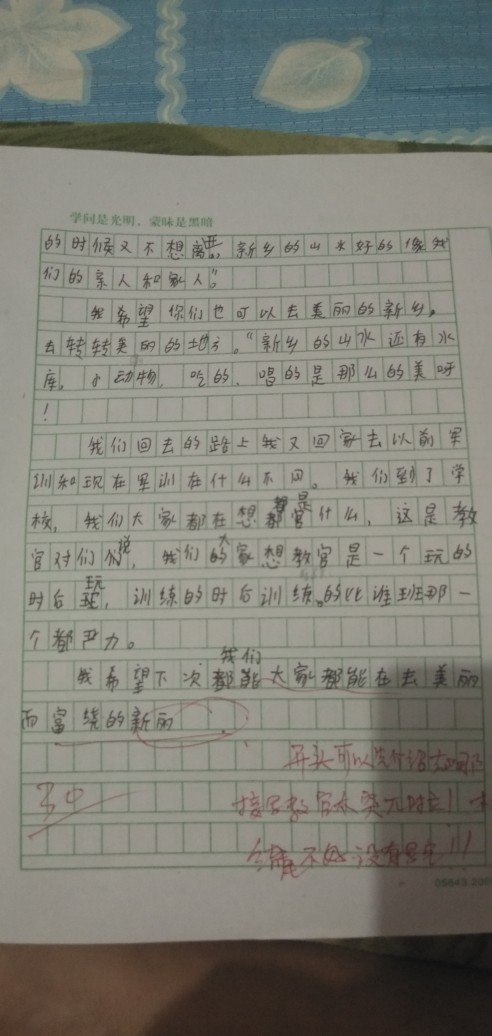 学问是光明，蒙昧是黑暗
的时候又不想离开。新乡的山水好的像我
们的亲人和家人。
我希望你们也可以去美丽的新乡。
去转转美丽的地方。“新乡的山水还有水
库，小动物，吃的，喝的是那么的美呀
！
我们回去的路上我又回家去以前军
训和现在军训在什么不同。我们到了学
校，我们大家都在想都是官什么，这是教
官对们们说，我们大家想教官是一个玩的
时后玩，训练的时后训练。的比谁班那一
个都严力。
我希望下次我们都能大家都能在去美丽
而富绕的新丽
开头可以先介绍
30
接写教官
结尾不好没有
05643.200